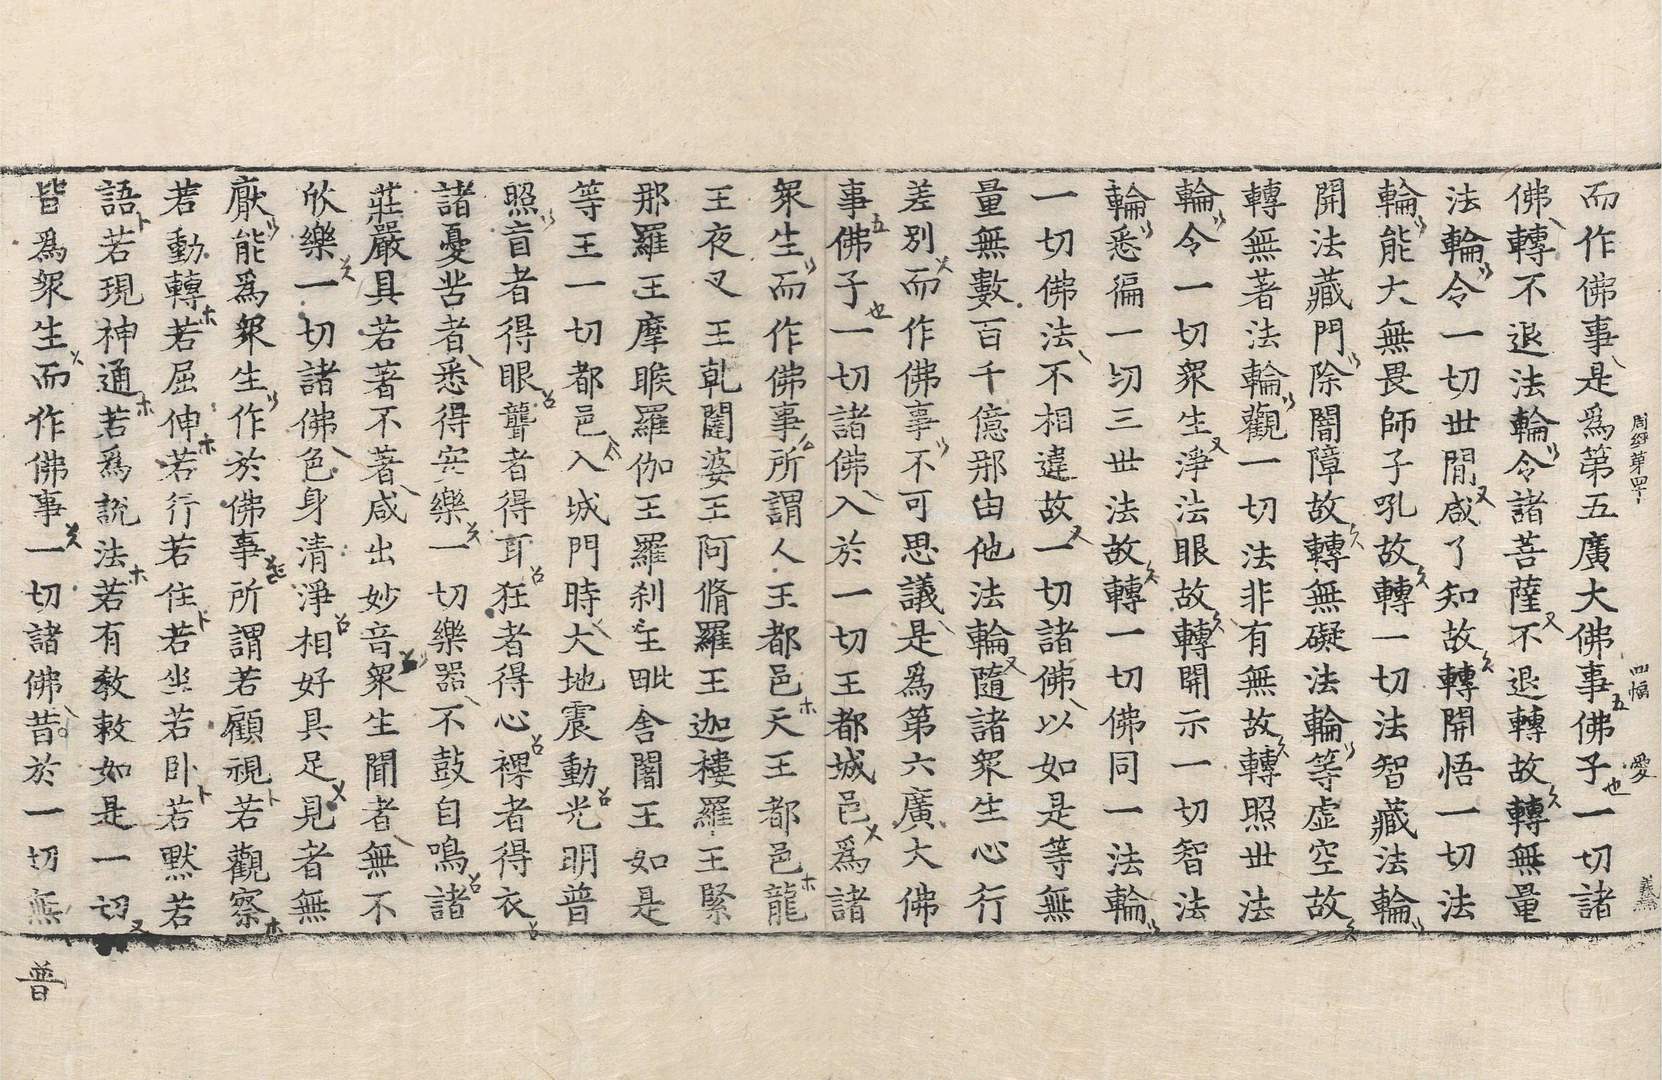 周經第四十 四幅 愛
而作佛事是爲第五廣大佛事佛子一切諸
佛轉不退法輪令諸菩薩不退轉故轉無量
法輪令一切世間咸了知故轉開悟一切法
輪能大無畏師子吼故轉一切法智藏法輪
開法藏門除闇障故轉無礙法輪等虛空故
轉無著法輪觀一切法非有無故轉照世法
輪令一切衆生淨法眼故轉開示一切智法
輪悉徧一切三世法故轉一切佛同一法輪
一切佛法不相違故一切諸佛以如是等無
量無數百千億那由他法輪隨諸衆生心行
差別而作佛事不可思議是爲第六廣大佛
事佛子一切諸佛入於一切王都城邑爲諸
衆生而作佛事所謂人王都邑天王都邑龍
王夜叉王乾闥婆王阿脩羅王迦樓羅王緊
那羅王摩睺羅伽王羅刹王毗舍闍王如是
等王一切都邑入城門時大地震動光明普
照盲者得眼聾者得耳狂者得心裸者得衣
諸憂苦者悉得安樂一切樂器不鼓自鳴諸
莊嚴具若著不著咸出妙音衆生聞者無不
欣樂一切諸佛色身清淨相好具足見者無
厭能爲衆生作於佛事所謂若顧視若觀察
若動轉若屈伸若行若住若坐若卧若默若
語若現神通若爲說法若有敎敕如是一切
皆爲衆生而作佛事一切諸佛昔於一切無
普